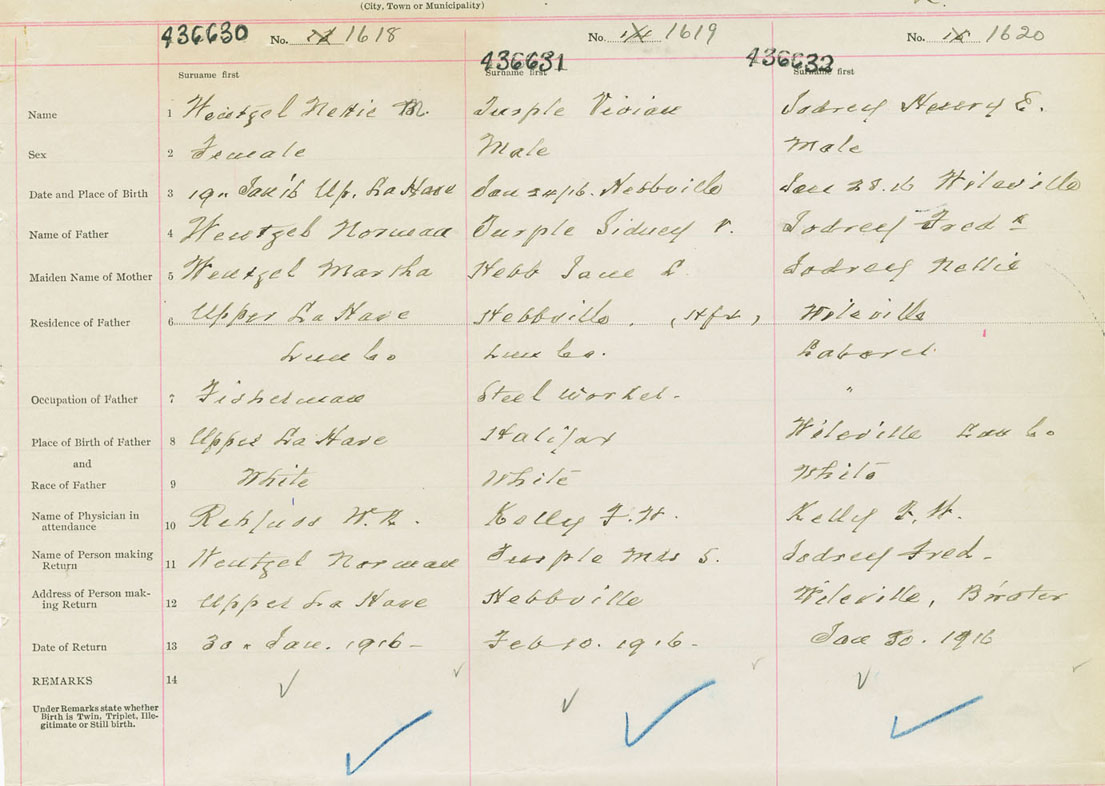 (City, Town or Municipality)
436630 No. 13 1618
436631 No. 14 1619
436632 No. 15 1620
Surname first Surname first Surname first
Name 1 Wentzel Nettie M. Turple Vivian Jodrey Henry E.
Sex 2 Female Male Male
Date and Place of Birth 3 19" Jan'16 Up. LaHave Jan 24/16. Hebbville Jan 28.16 Wileville
Name of Father 4 Wentzel Norman Turple Sidney V. Jodrey Fred k
Maiden Name of Mother 5 Wentzel Martha Hebb Jane L Jodrey Nellie
Residence of Father 6 Upper LaHave Hebbville. (Hfx) Wileville
Lun Co Lun Co. Laborer
Occupation of Father 7 Fisherman Steel worker - "
Place of Birth of Father 8 Upper LaHave Halifax Wileville Lun Co
and
Race of Father 9 White White White
Name of Physician in
attendance 10 Rehfuss W.N. Kelly F.W. Kelly F.W.
Name of Person making
Return 11 Wentzel Norman Turple Mrs S. Jodrey Fred -
Address of Person mak-
ing Return 12 Upper LaHave Hebbville Wileville, B'water
Date of Return 13 30" Jan. 1916 - Feb 10. 1916 - Jan 30. 1916
REMARKS 14
Under Remarks state whether
Birth is Twin, Triplet, Ille-
gitimate or Still birth.